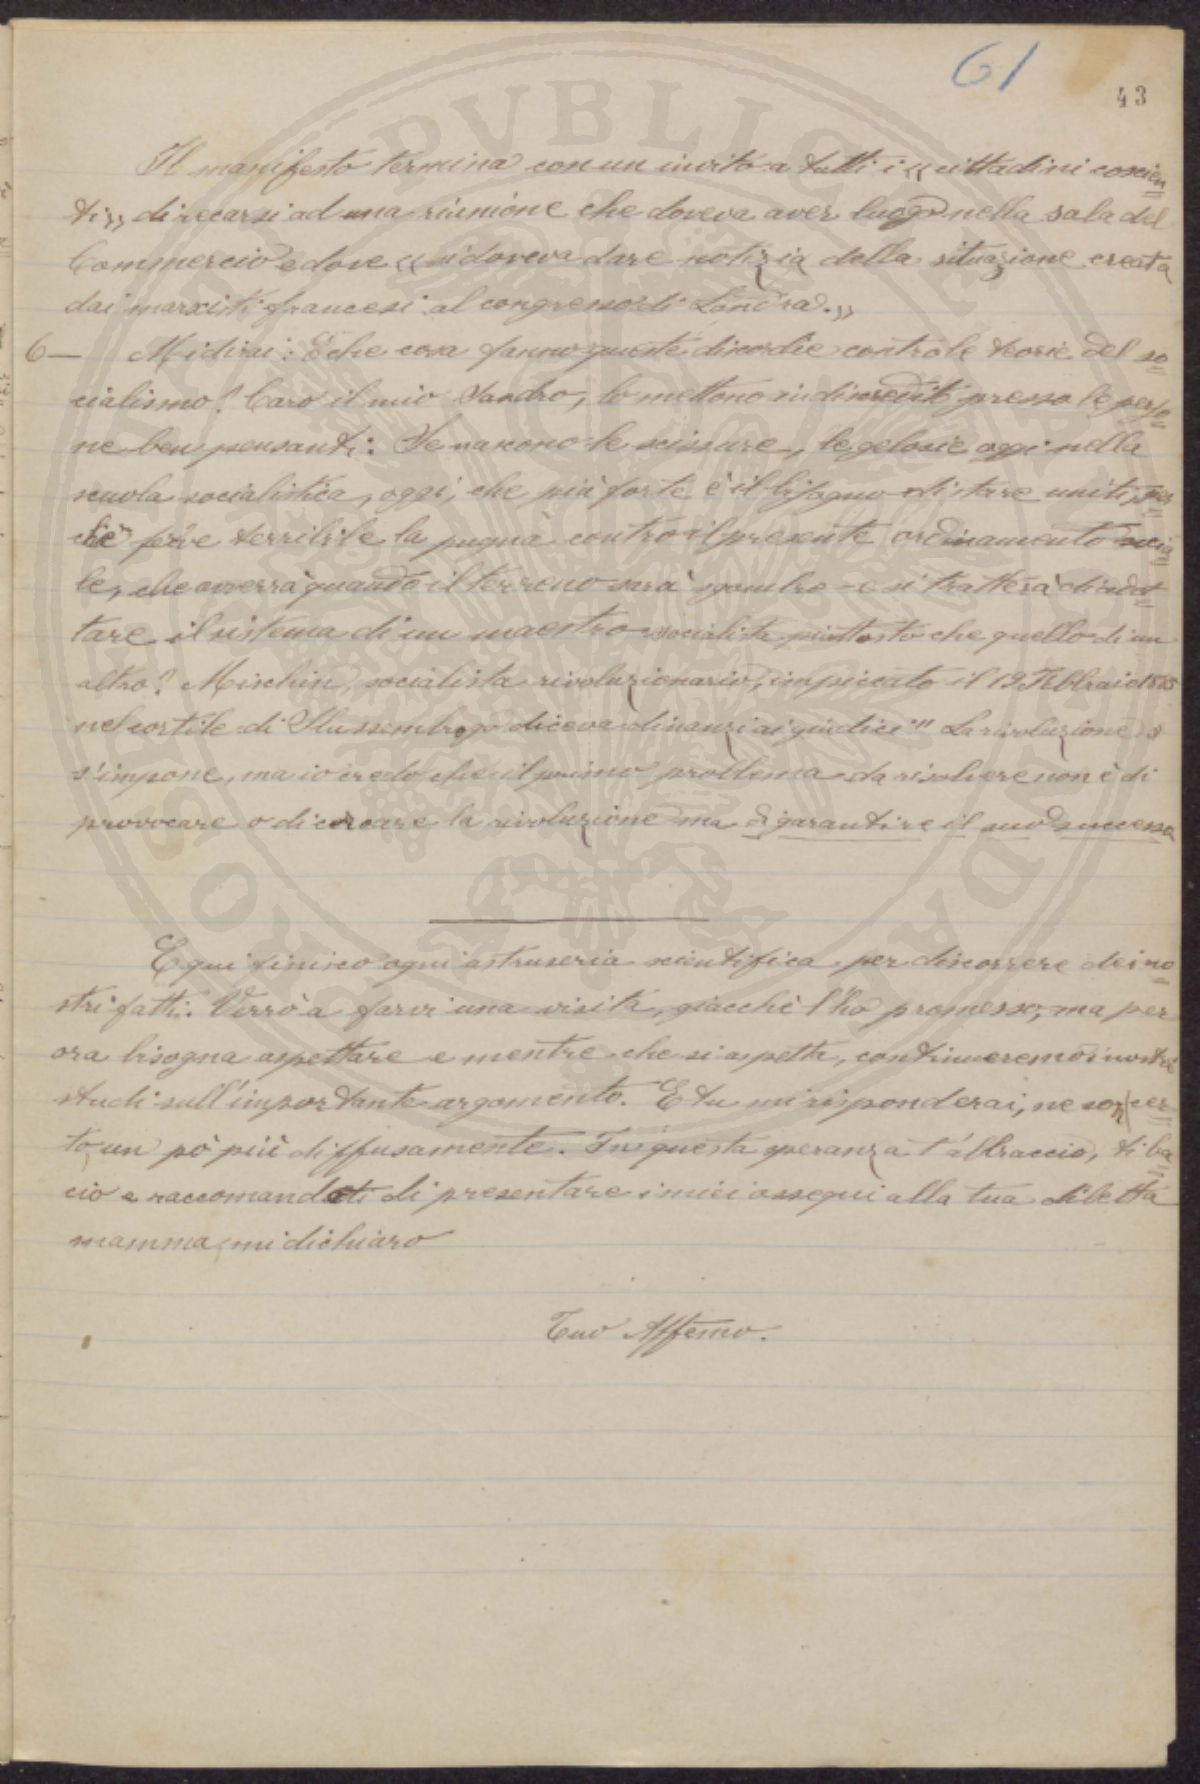 61
43
Il manifesto termina con un invito a tutti i « cittadini coscien
ti » di recarsi ad una riunione che doveva aver luogo nella sala del
Commercio e dove « si doveva dare notizia della situazione creata
dai marxisti francesi al congresso di Londra. »
6 — Mi dirai: E che cosa fanno queste discordie contro le teorie del so
cialismo? Caro il mio Sandro, lo mettono in discredito presso le perso
ne ben pensanti: Se nascono le scissure, le gelosie oggi nella
scuola socialistica, oggi, che più forte è il bisogno di stare uniti, per
chè ferve terribile la pugna contro il presente ordinamento socia
le, che avverrà quando il terreno sarà sgombro e si tratterà di adot
tare il sistema di un maestro socialista piuttosto che quello di un
altro? Mischin, socialista rivoluzionario, impiccato il 19 Febbraio
nel cortile di diceva dinanzi ai giudici " La rivoluzione
s'impone, ma io credo che il primo problema da risolvere non è di
provocare o di creare la rivoluzione ma di garantire il suo successo
E qui finisco ogni astruseria scientifica per discorrere dei no
stri fatti. Verrò a farvi una visita, giacchè l'ho promesso, ma per
ora bisogna aspettare e mentre che si aspetta, continueremo i nostri
studi sull'importante argomento. E tu mi risponderai, ne son cer
to, un pò più diffusamente. In questa speranza t'abbraccio, ti ba
cio e raccomandoti di presentare i miei ossequi alla tua diletta
mamma, mi dichiaro
Tuo Affemo.
PVBLICAE